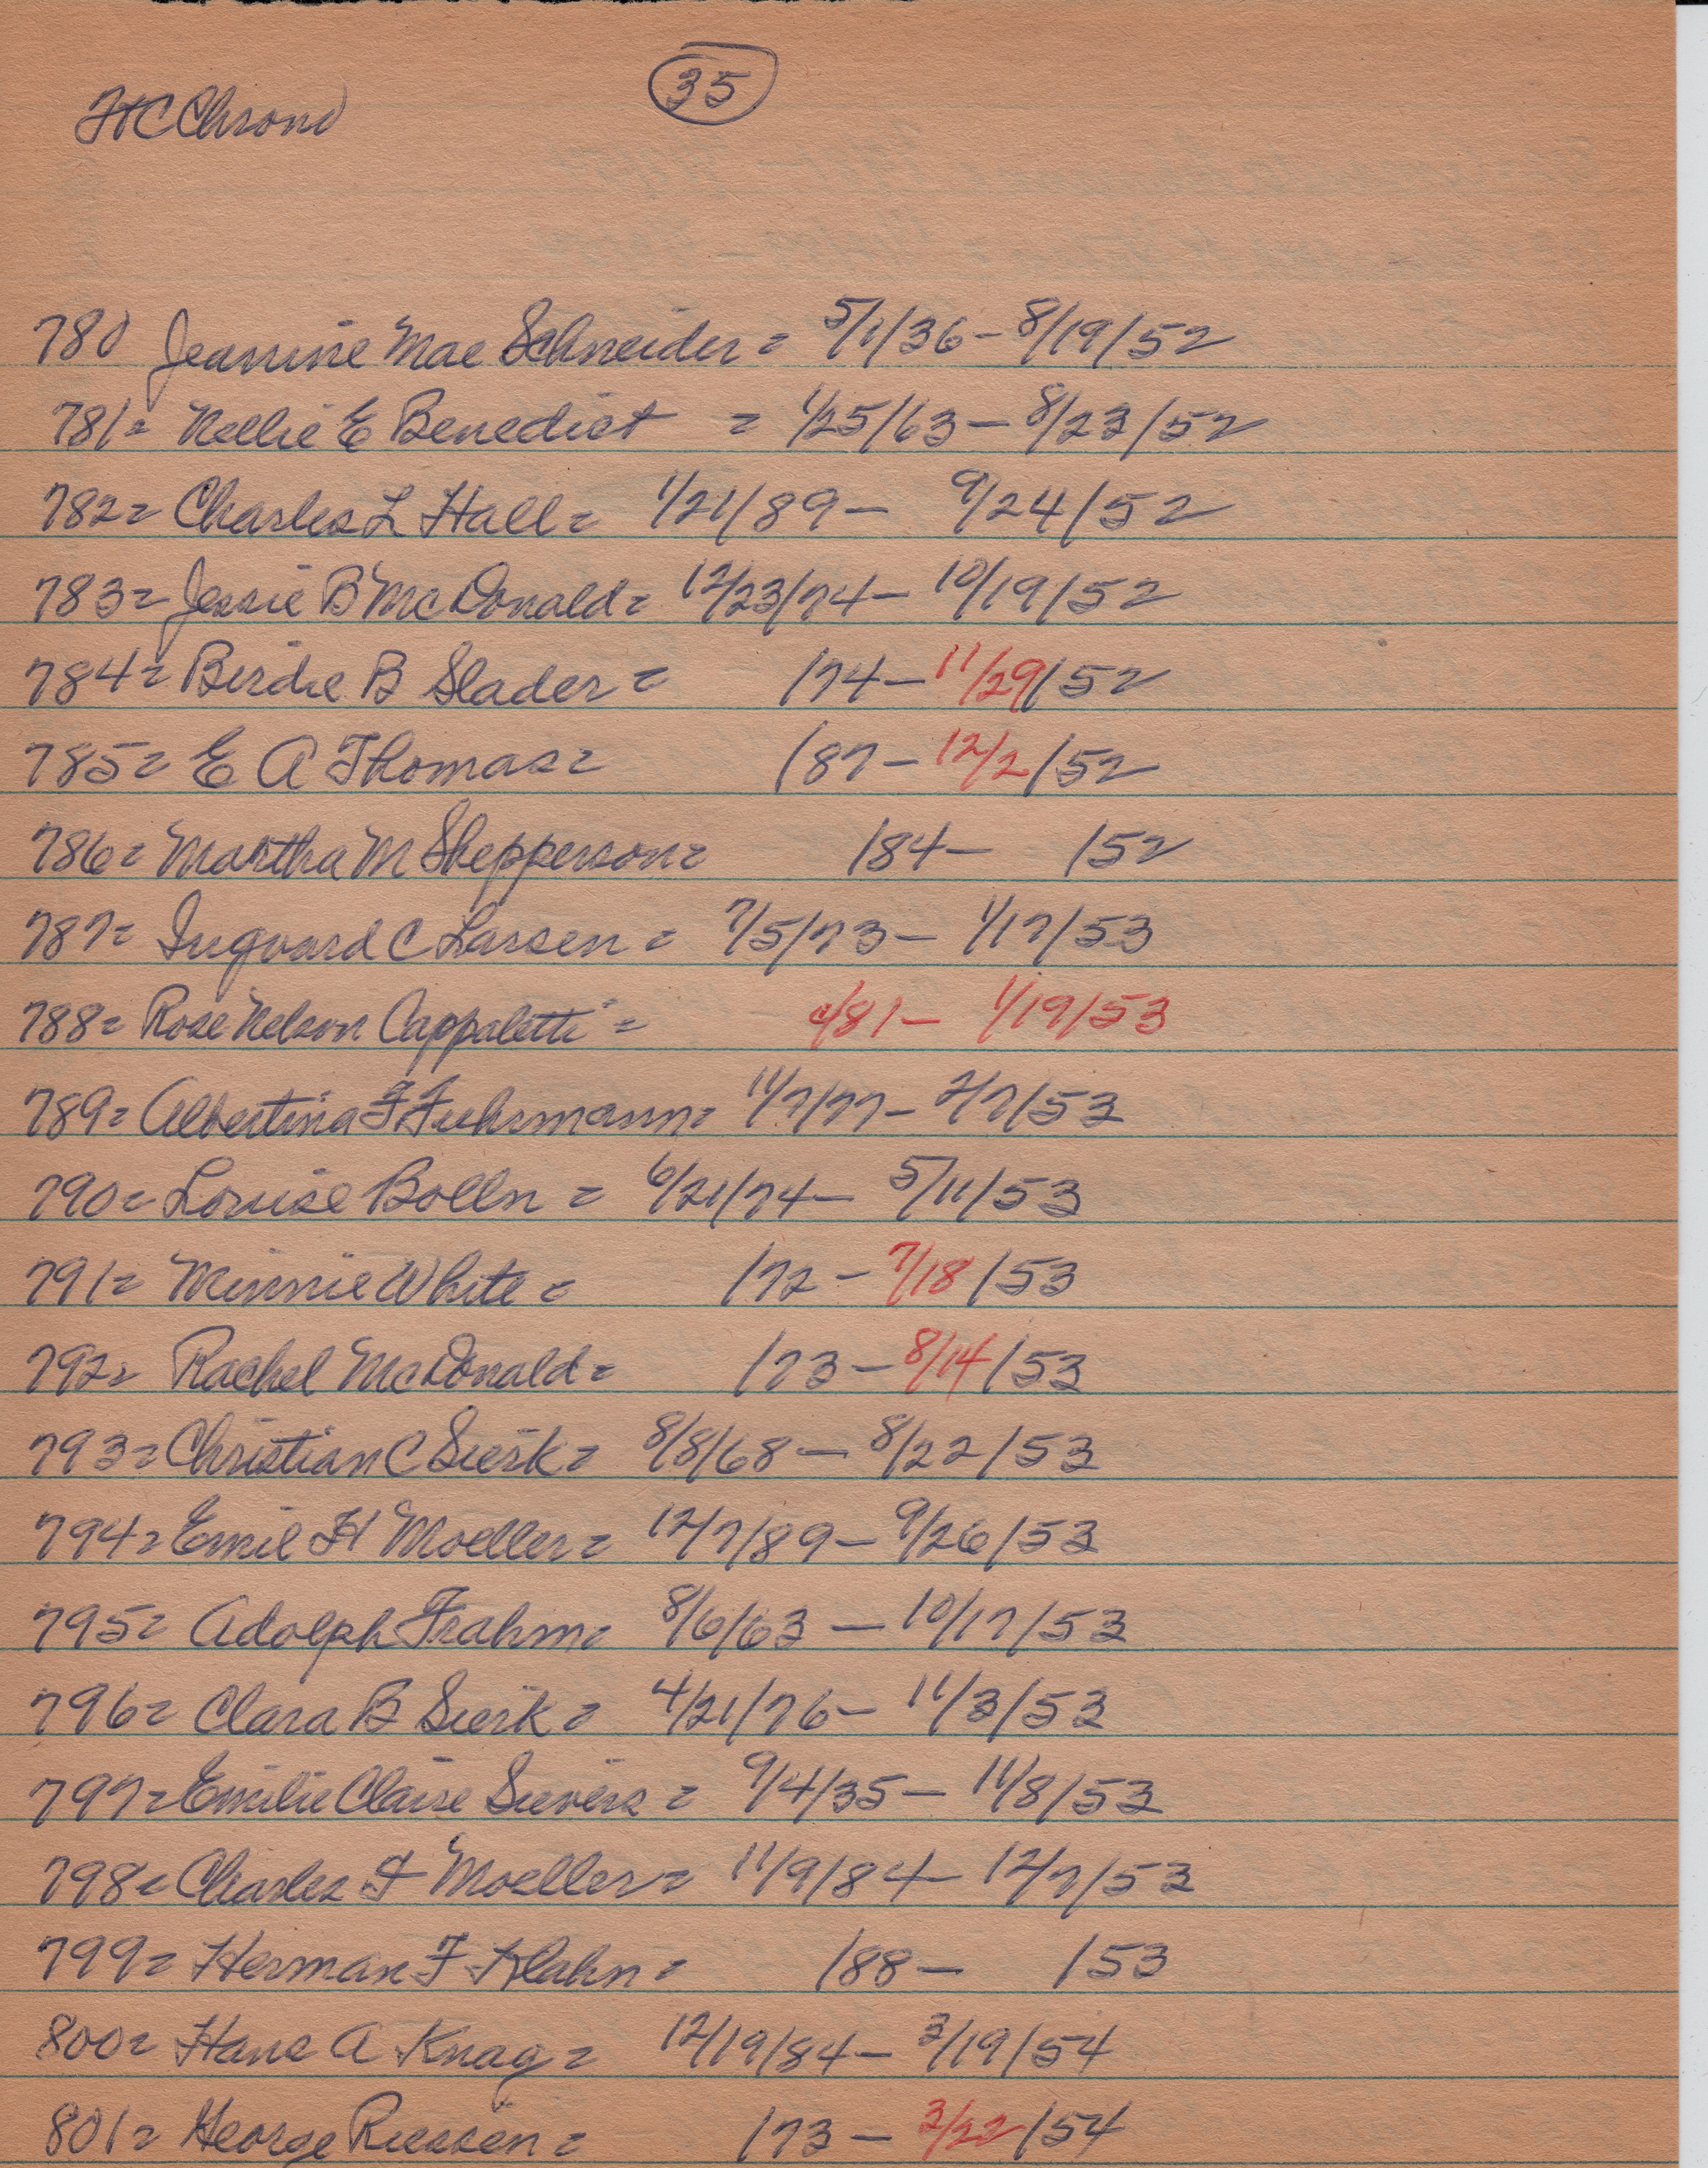 35
HC Chrono
780 Jeannine Mae Schneider = 5/1/36 - 8/19/52
781 = Nellie E Benedict = 1/25/63 - 8/23/52
782 = Charles L Hall = 1/21/89 - 9/24/52
783 = Jessie B McDonald = 12/23/74 - 10/19/52
784 = Birdie B Slader = /74 - 11/29/52
785 = E A Thomas = /87 - 12/2/52
786 = Martha M Shepperson = /84 - /52
787 = Ingvard C Larsen = 7/5/73 - 1/17/53
788 = Rose Nelson Cappaletti = c/81 - 1/19/53
789 = Albertina F Fuhrmann = 11/7/77 - 2/7/53
790 = Louise Bolln = 6/21/74 - 5/11/53
791 = Minnie White = /72 - 7/18/53
792 = Rachel McDonald = /73 - 8/14/53
793 = Christian C Sierk = 8/8/68 - 8/22/53
794 = Emil H Moeller = 12/7/89 - 9/26/53
795 = Adolph Frahm = 8/6/63 - 10/17/53
796 = Clara B Sierk = 4/21/76 - 11/3/53
797 = Emilie Claire Sievers = 9/4/35 - 11/8/53
798 = Charles F Moeller = 11/9/84 - 12/7/53
799 = Herman F Klahn = /88 - /53
800 = Hans A Knag = 12/19/84 - 3/19/54
801 = George Riessen = /73 - 3/22/54